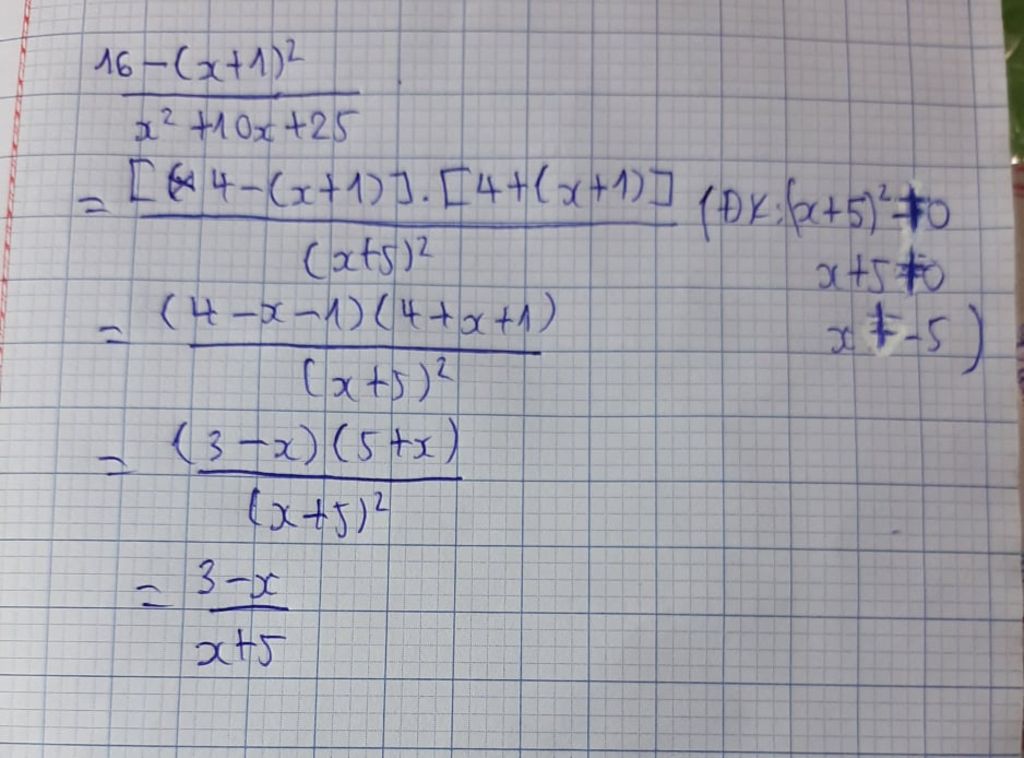 16-(x+1)²
x²+10x+25
= [4-(x+1)].[4+(x+1)] (ĐK:(x+5)²≠0
(x+5)² x+5≠0
= (4-x-1)(4+x+1) x≠-5)
(x+5)²
= (3-x)(5+x)
(x+5)²
= 3-x
x+5